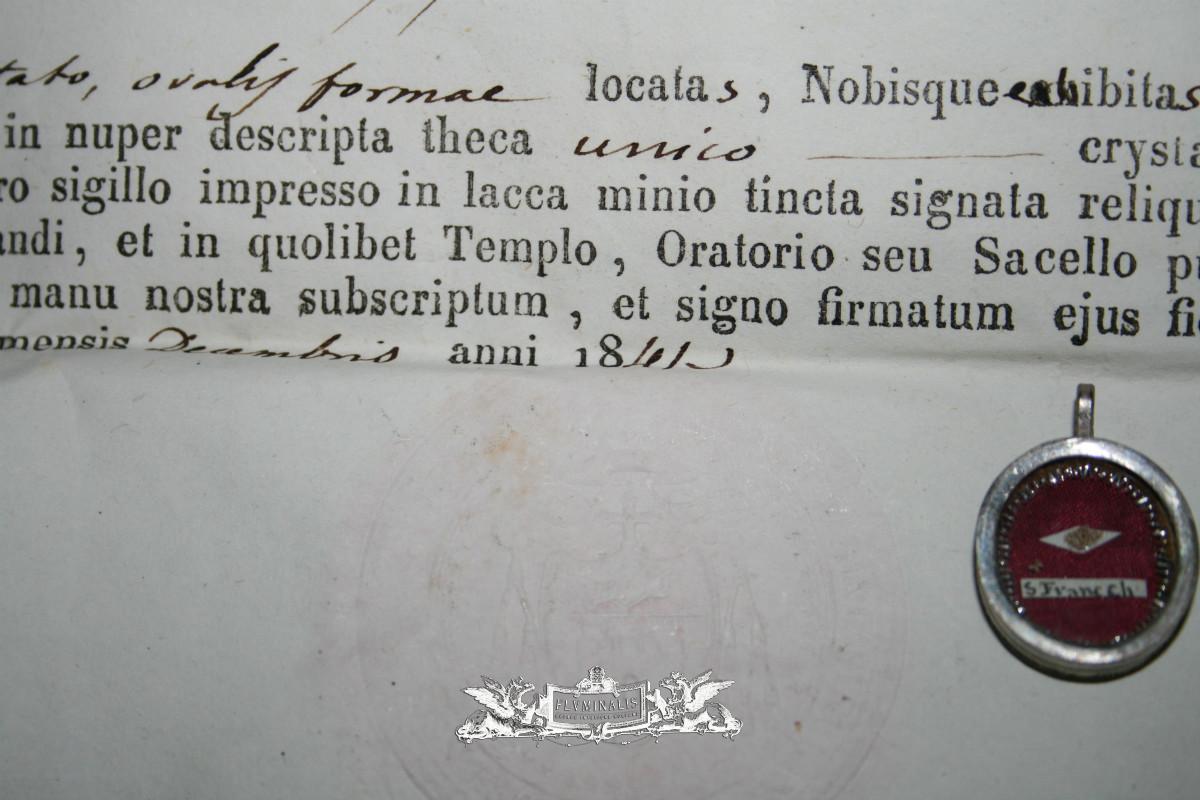 tato, ovalis formae locatas, Nobisque exhibitas
in nuper descripta theca unico crysta
ro sigillo impresso in lacca minio tincta signata reliqu
andi, et in quolibet Templo, Oratorio seu Sacello pr
manu nostra subscriptum, et signo firmatum ejus fid
mensis Decembris anni 184
S Franc ch
FLVMINALIS